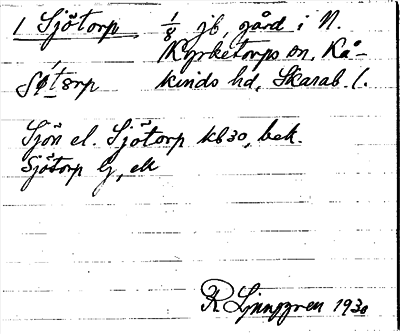 1 Sjötorp 1/8 jb, gård i N.
Kyrketorps sn, Kå-
kinds hd, Skarab. l.
Sjön el. Sjötorp kb30, bek.
Sjötorp
R Ljunggren 1930